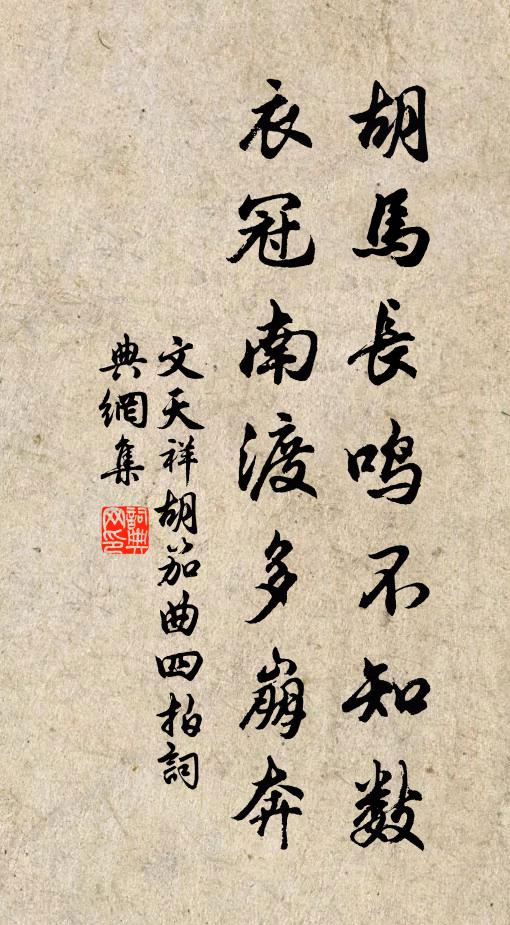 胡馬長鳴不知數
衣冠南渡多崩奔
文天祥胡笳曲四拍詞
典網集
詞典網印